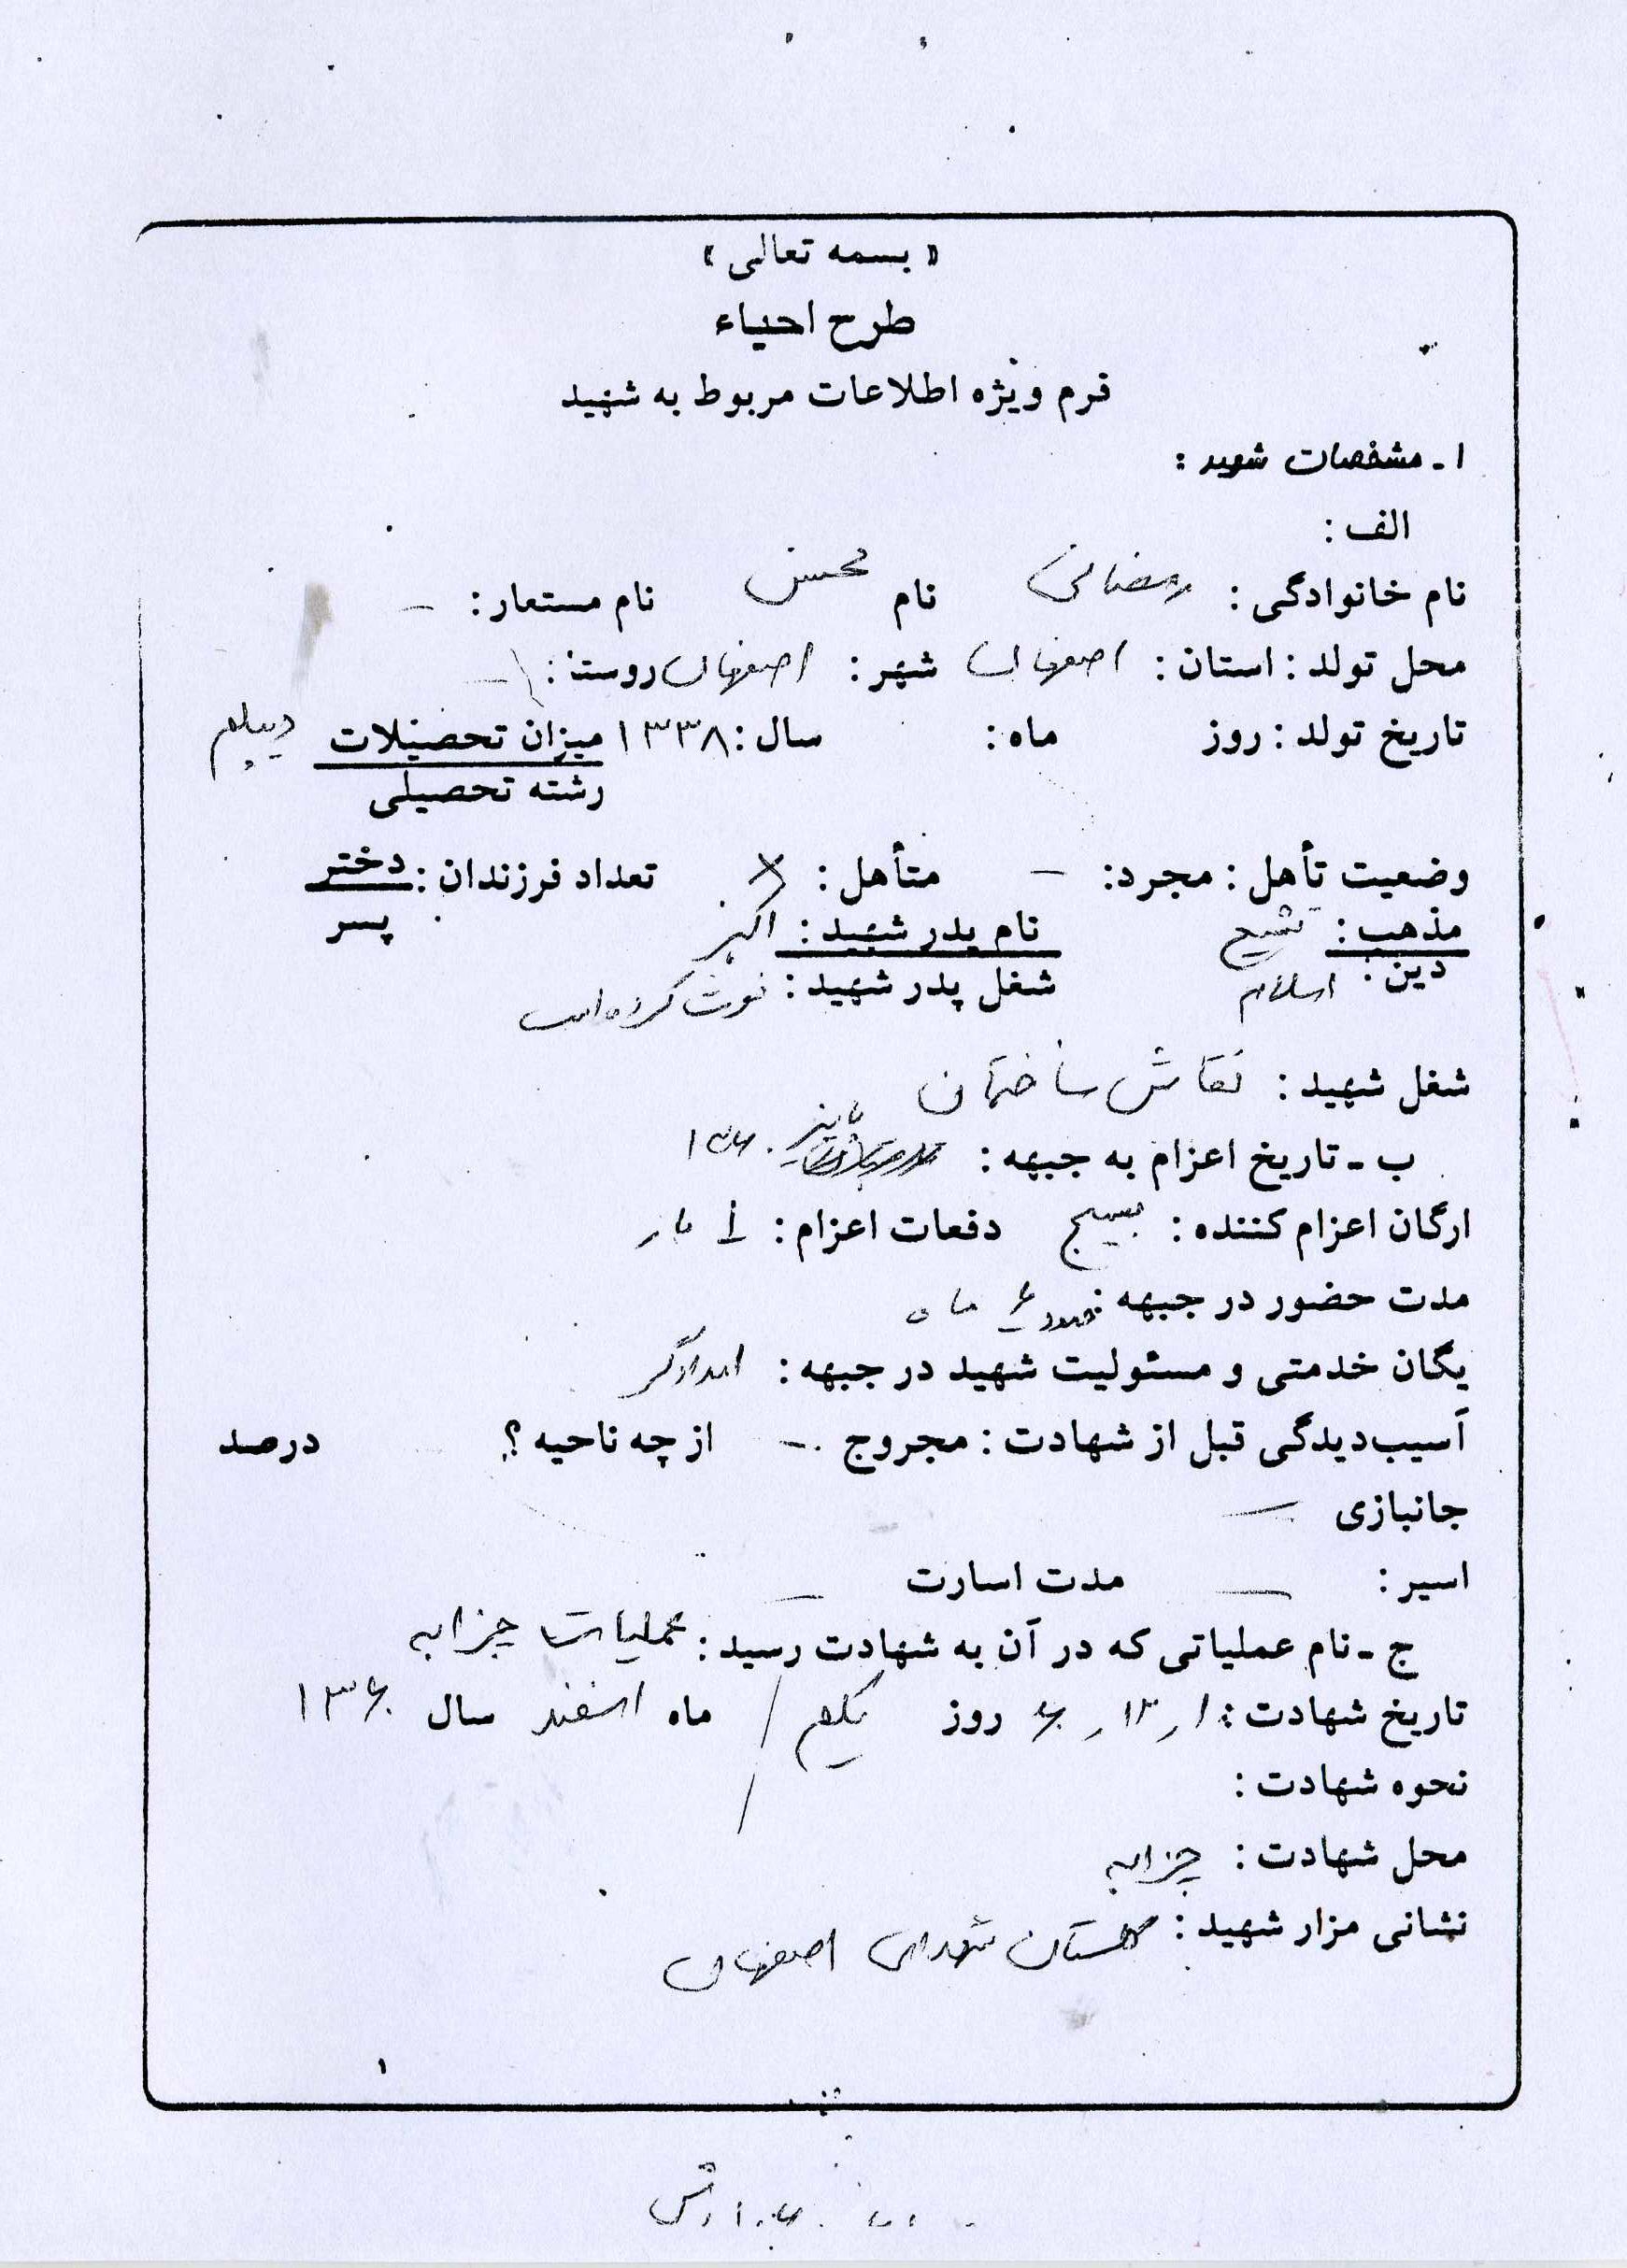 « بسمه تعالی »
طرح احیاء
فرم ویژه اطلاعات مربوط به شهید
۱ ـ مشخصات شهید :
الف :
نام خانوادگی : رمضانی نام محسن نام مستعار : –
محل تولد : استان : اصفهان شهر : اصفهان روستا : –
تاریخ تولد : روز ماه : سال : ۱۳۳۸ میزان تحصیلات دیپلم
رشته تحصیلی
وضعیت تأهل : مجرد : – متأهل : × تعداد فرزندان : دختر
پسر
مذهب : تشیع نام پدر شهید : اکبر
دین : اسلام شغل پدر شهید : فوت کرده است
شغل شهید : نقاش ساختمان
ب ـ تاریخ اعزام به جبهه : پاییز ۱۳۶۰
ارگان اعزام کننده : بسیج دفعات اعزام : ۱ بار
مدت حضور در جبهه : ماه
یگان خدمتی و مسئولیت شهید در جبهه : امدادگر
آسیب‌دیدگی قبل از شهادت : مجروح – از چه ناحیه ؟ درصد
جانبازی –
اسیر : – مدت اسارت –
ج ـ نام عملیاتی که در آن به شهادت رسید : عملیات چزابه
تاریخ شهادت : ۱ ر ۱۲ ر ۶۰ روز یکم / ماه اسفند سال ۱۳۶۰
نحوه شهادت : /
محل شهادت : چزابه
نشانی مزار شهید : گلستان شهدای اصفهان
۱